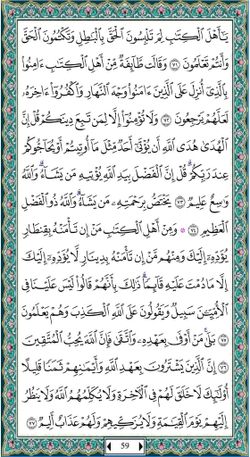 يَٰٓأَهۡلَ ٱلۡكِتَٰبِ لِمَ تَلۡبِسُونَ ٱلۡحَقَّ بِٱلۡبَٰطِلِ وَتَكۡتُمُونَ ٱلۡحَقَّ
وَأَنتُمۡ تَعۡلَمُونَ ٧١ وَقَالَت طَّآئِفَةٞ مِّنۡ أَهۡلِ ٱلۡكِتَٰبِ ءَامِنُواْ
بِٱلَّذِيٓ أُنزِلَ عَلَى ٱلَّذِينَ ءَامَنُواْ وَجۡهَ ٱلنَّهَارِ وَٱكۡفُرُوٓاْ ءَاخِرَهُۥ
لَعَلَّهُمۡ يَرۡجِعُونَ ٧٢ وَلَا تُؤۡمِنُوٓاْ إِلَّا لِمَن تَبِعَ دِينَكُمۡ قُلۡ إِنَّ
ٱلۡهُدَىٰ هُدَى ٱللَّهِ أَن يُؤۡتَىٰٓ أَحَدٞ مِّثۡلَ مَآ أُوتِيتُمۡ أَوۡ يُحَآجُّوكُمۡ
عِندَ رَبِّكُمۡۗ قُلۡ إِنَّ ٱلۡفَضۡلَ بِيَدِ ٱللَّهِ يُؤۡتِيهِ مَن يَشَآءُۗ وَٱللَّهُ
وَٰسِعٌ عَلِيمٞ ٧٣ يَخۡتَصُّ بِرَحۡمَتِهِۦ مَن يَشَآءُۗ وَٱللَّهُ ذُو ٱلۡفَضۡلِ
ٱلۡعَظِيمِ ٧٤ ۞ وَمِنۡ أَهۡلِ ٱلۡكِتَٰبِ مَنۡ إِن تَأۡمَنۡهُ بِقِنطَارٖ
يُؤَدِّهِۦٓ إِلَيۡكَ وَمِنۡهُم مَّنۡ إِن تَأۡمَنۡهُ بِدِينَارٖ لَّا يُؤَدِّهِۦٓ إِلَيۡكَ
إِلَّا مَا دُمۡتَ عَلَيۡهِ قَآئِمٗاۗ ذَٰلِكَ بِأَنَّهُمۡ قَالُواْ لَيۡسَ عَلَيۡنَا فِي
ٱلۡأُمِّيِّـۧنَ سَبِيلٞ وَيَقُولُونَ عَلَى ٱللَّهِ ٱلۡكَذِبَ وَهُمۡ يَعۡلَمُونَ
٧٥ بَلَىٰۚ مَنۡ أَوۡفَىٰ بِعَهۡدِهِۦ وَٱتَّقَىٰ فَإِنَّ ٱللَّهَ يُحِبُّ ٱلۡمُتَّقِينَ
٧٦ إِنَّ ٱلَّذِينَ يَشۡتَرُونَ بِعَهۡدِ ٱللَّهِ وَأَيۡمَٰنِهِمۡ ثَمَنٗا قَلِيلًا
أُوْلَٰٓئِكَ لَا خَلَٰقَ لَهُمۡ فِي ٱلۡأٓخِرَةِ وَلَا يُكَلِّمُهُمُ ٱللَّهُ وَلَا يَنظُرُ
إِلَيۡهِمۡ يَوۡمَ ٱلۡقِيَٰمَةِ وَلَا يُزَكِّيهِمۡ وَلَهُمۡ عَذَابٌ أَلِيمٞ ٧٧
59